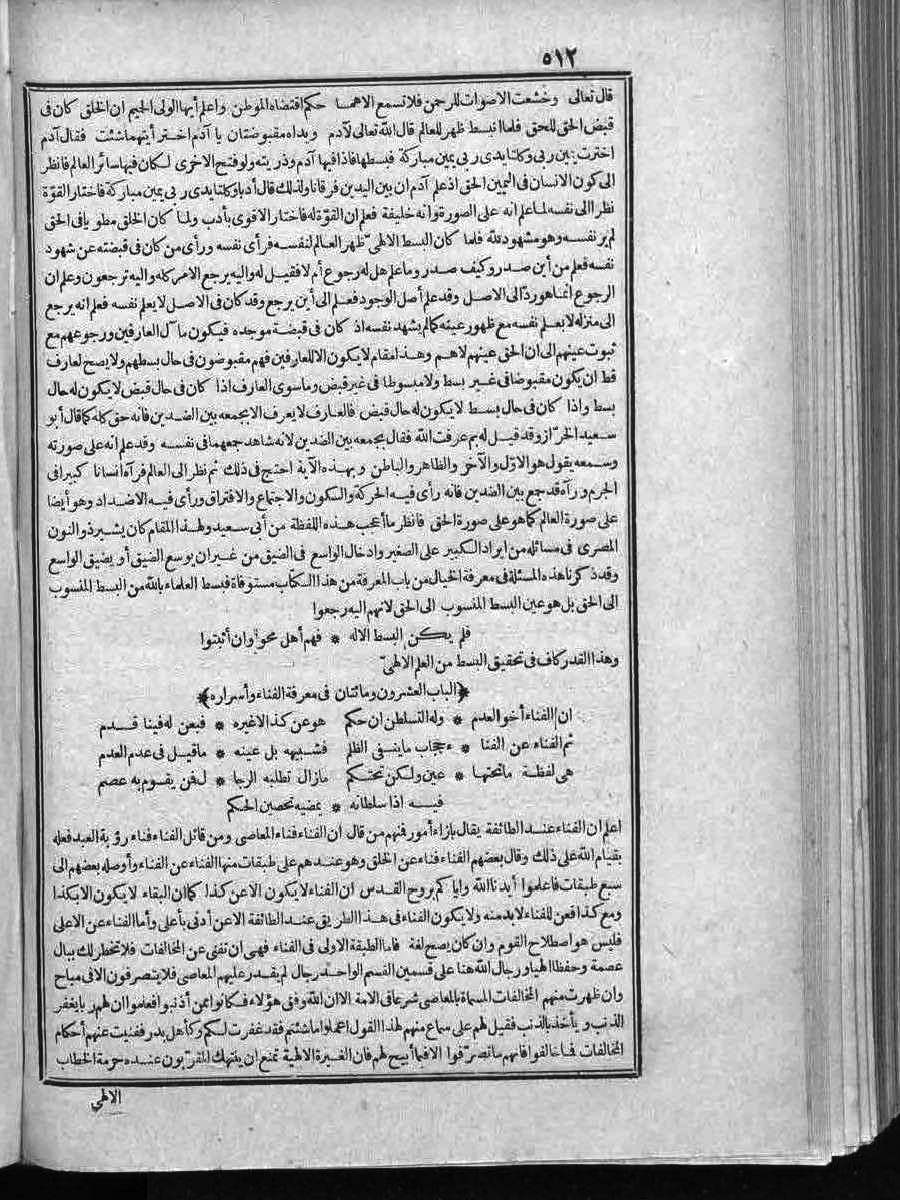 ٥١٢
قال تعالى وخشعت الاصوات للرحمن فلا تسمع الا همسا حكم اقتضاه الموطن واعلم أيها الولى الحميم ان الخلق كان فى
قبض الحق للحق فلما انبسط ظهر للعالم قال الله تعالى لآدم ويداه مقبوضتان يا آدم اختر أيتهما شئت فقال آدم
اخترت يمين ربى وكلتا يدى ربى يمين مباركة فبسطها فاذا فيها آدم وذريته ولو فتح الاخرى لكان فيها سائر العالم فانظر
الى كون الانسان فى اليمين الحق اذ علم آدم ان بين اليدين فرقانا ولذلك قال أدبا وكلتا يدى ربى يمين مباركة فاختار القوّة
نظرا الى نفسه لما علم انه على الصورة وانه خليفة فعلم ان القوّة له فاختار الاقوى بأدب ولما كان الخلق مطويا فى الحق
لم ير نفسه وهو مشهود لله فلما كان البسط الالهىّ ظهر العالم لنفسه فرأى نفسه ورأى من كان فى قبضته عن شهود
نفسه فعلم من أين صدر وكيف صدر وما علم هل له رجوع أم لا فقيل له واليه يرجع الامر كله واليه ترجعون وعلم ان
الرجوع انما هو ردّ الى الاصل وقد علم أصل الوجود فعلم الى أين يرجع وقد كان فى الاصل لا يعلم نفسه فعلم انه يرجع
الى منزله لا يعلم نفسه مع ظهور عينه كما لم يشهد نفسه اذ كان فى قبضة موجده فيكون مآل العارفين ورجوعهم مع
ثبوت عينهم الى ان الحق عينهم لا هم وهذا مقام لا يكون الا للعارفين فهم مقبوضون فى حال بسطهم ولا يصح لعارف
قط ان يكون مقبوضا فى غير بسط ولا مبسوطا فى غير قبض وما سوى العارف اذا كان فى حال قبض لا يكون له حال
بسط واذا كان فى حال بسط لا يكون له حال قبض فالعارف لا يعرف الا بجمعه بين الضدين فانه حق كله كما قال أبو
سعيد الخرّاز وقد قيل له بم عرفت الله فقال بجمعه بين الضدين لانه شاهد جمعهما فى نفسه وقد علم انه على صورته
وسمعه يقول هو الاوّل والآخر والظاهر والباطن وبهذه الآية احتج فى ذلك ثم نظر الى العالم فرآه انسانا كبيرا فى
الجرم ورآه قد جمع بين الضدين فانه رأى فيه الحركة والسكون والاجتماع والافتراق ورأى فيه الاضداد وهو أيضا
على صورة العالم كما هو على صورة الحق فانظر ما أعجب هذه اللفظة من أبى سعيد ولهذا المقام كان يشير ذو النون
المصرى فى مسائله من ايراد الكبير على الصغير وادخال الواسع فى الضيق من غير ان يوسع الضيق أو يضيق الواسع
وقد ذكرنا هذه المسئلة فى معرفة الخيال من باب المعرفة من هذا الكتاب مستوفاة فبسط العلماء بالله من البسط المنسوب
الى الحق بل هو عين البسط المنسوب الى الحق لانهم اليه رجعوا
فلم يكن البسط الا له * فهم أهل محو وان أثبتوا
وهذا القدر كاف فى تحقيق البسط من العلم الالهىّ
﴿الباب العشرون ومائتان فى معرفة الفناء وأسراره﴾
ان الفناء أخو العدم * وله التسلطن ان حكم هو عن كذا لا غيره * فبعن له فينا قدم
ثم الفناء عن الفنا * ء حجاب ما ينفى الظلم فشبيهه بل عينه * ما قيل فى عدم العدم
هى لفظة ما تحتها * عين ولكن تحتكم ما زال تطلبه الرجا * ل فمن يقوم به عصم
فيه اذا سلطانه * يمضيه تحصين الحكم
اعلم ان الفناء عند الطائفة يقال بازاء أمور فمنهم من قال ان الفناء فناء المعاصى ومن قائل الفناء فناء رؤية العبد فعله
بقيام الله على ذلك وقال بعضهم الفناء فناء عن الخلق وهو عندهم على طبقات منها الفناء عن الفناء وأوصله بعضهم الى
سبع طبقات فاعلموا أيدنا الله واياكم بروح القدس ان الفناء لا يكون الا عن كذا كما ان البقاء لا يكون الا بكذا
ومع كذا فعن للفناء لا بد منه ولا يكون الفناء فى هذا الطريق عند الطائفة الا عن أدنى بأعلى وأما الفناء عن الاعلى
فليس هو اصطلاح القوم وان كان يصح لغة فاما الطبقة الاولى فى الفناء فهى ان تفنى عن المخالفات فلا تخطر لك ببال
عصمة وحفظا الهيا ورجال الله هنا على قسمين القسم الواحد رجال لم يقدر عليهم المعاصى فلا يتصرفون الا فى مباح
وان ظهرت منهم المخالفات المسماة بالمعاصى شرعا فى الامة الا ان الله وفق هؤلاء فكانوا ممن أذنبوا فعلموا ان لهم ربا يغفر
الذنب ويأخذ بالذنب فقيل لهم على سماع منهم لهذا القول اعملوا ما شئتم فقد غفرت لكم وكأهل بدر ففنيت عنهم أحكام
المخالفات فما خالفوا فانهم ما تصرّفوا الا فيما أبيح لهم فان الغيرة الالهية تمنع ان ينتهك المقرّبون عنده حرمة الخطاب
الالهى